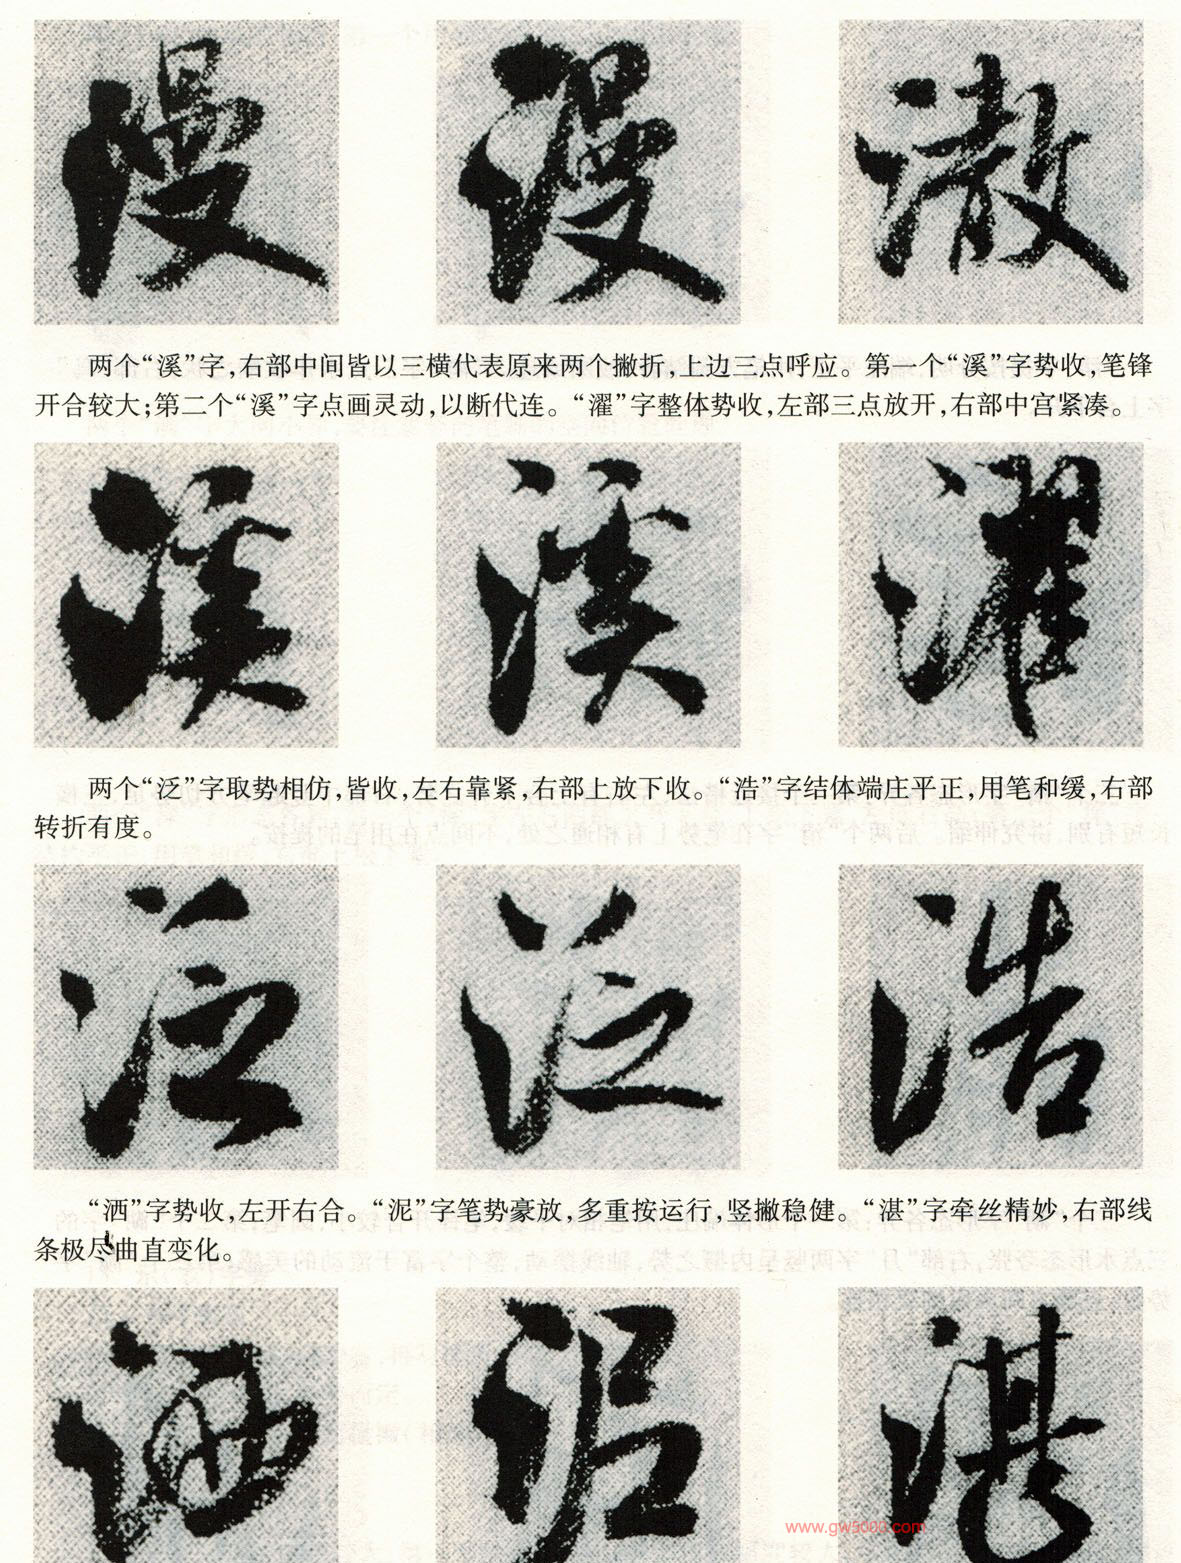 漫 漫 澈
两个“溪”字，右部中间皆以三横代表原来两个撇折，上边三点呼应。第一个“溪”字势收，笔锋
开合较大；第二个“溪”字点画灵动，以断代连。“濯”字整体势收，左部三点放开，右部中宫紧凑。
溪 溪 濯
两个“泛”字取势相仿，皆收，左右靠紧，右部上放下收。“浩”字结体端庄平正，用笔和缓，右部
转折有度。
泛 泛 浩
“洒”字势收，左开右合。“泥”字笔势豪放，多重按运行，竖撇稳健。“湛”字牵丝精妙，右部线
条极尽曲直变化。
洒 泥 湛
www.gw5000.com